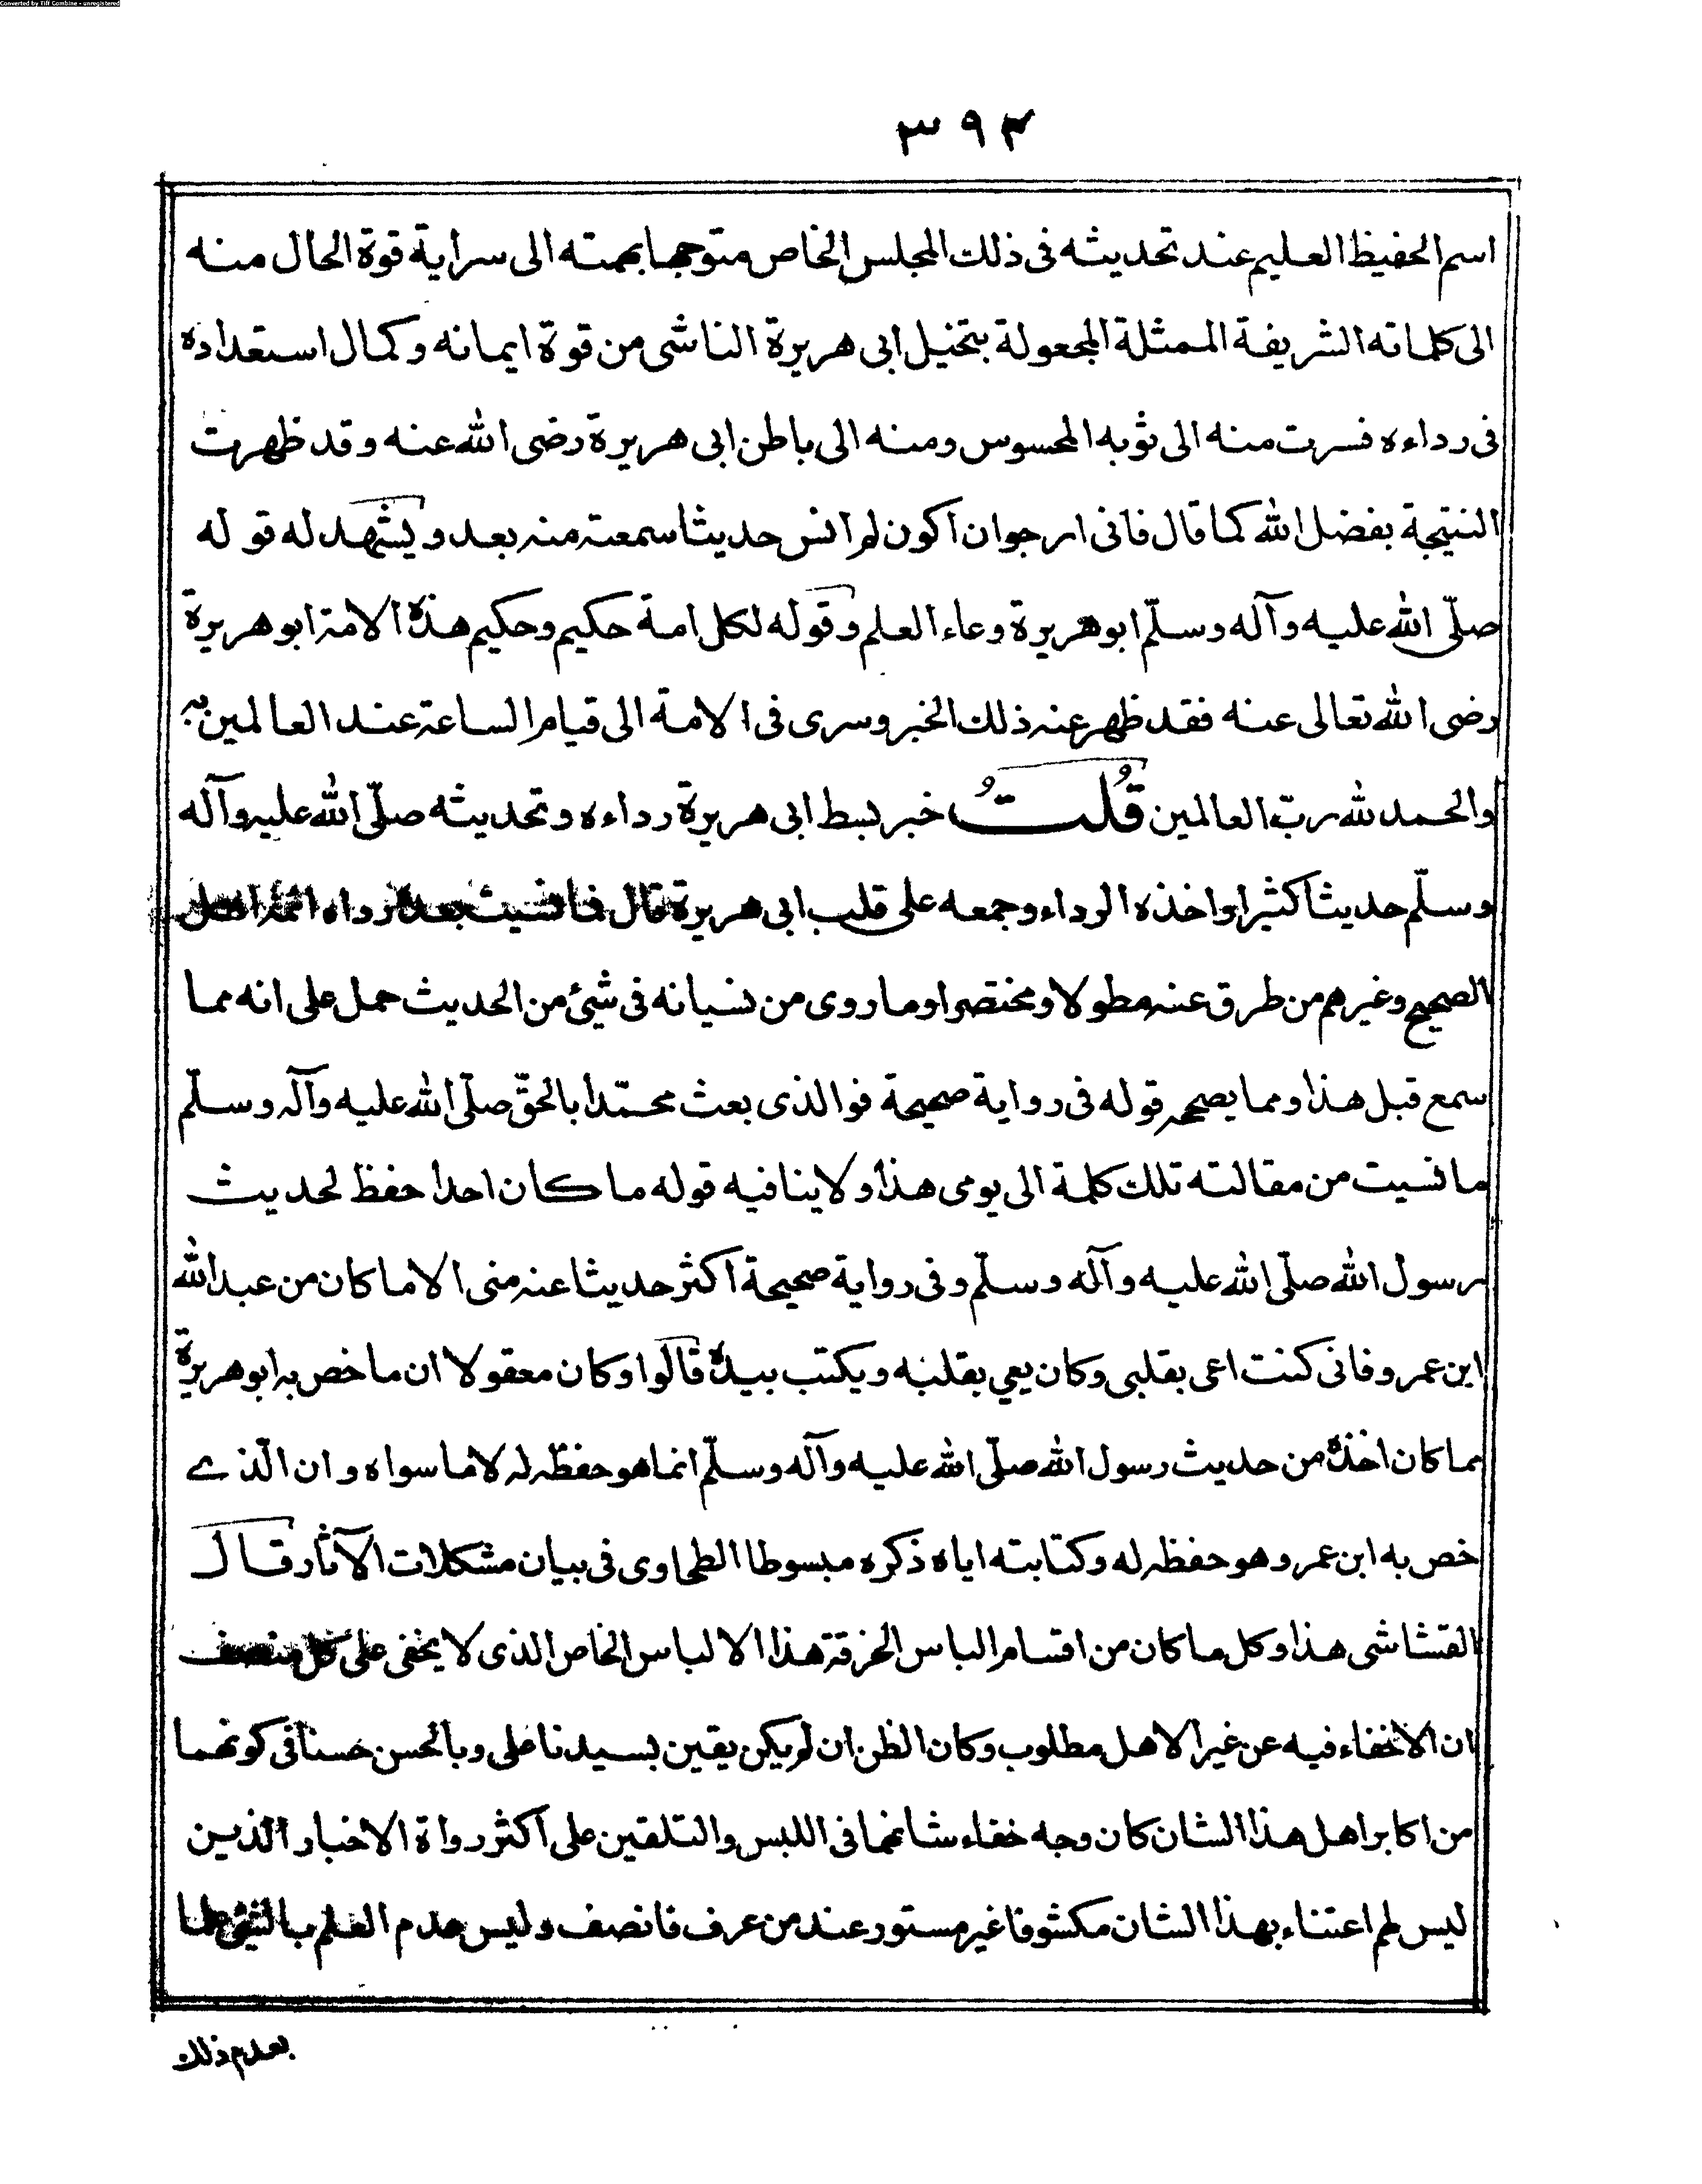 Converted by Tiff Combine - unregistered
٣٩٢
اسم الحفيظ العليم عند تحديثه فى ذلك المجلس الخاص متوجها بهمته الى سراية قوة الحال منه
الى كلماته الشريفة الممثلة المجعولة بتخيل ابى هريرة الناشى من قوة ايمانه وكمال استعداده
فى رداءه فسرت منه الى ثوبه المحسوس ومنه الى باطن ابى هريرة رضى الله عنه وقد ظهرت
النتيجة بفضل الله كما قال فانى ارجو ان اكون لم انس حديثا سمعته منه بعد ويشهد له قوله
صلّى الله عليه وآله وسلّم ابوهريرة وعاء العلم وقوله لكل امة حكيم وحكيم هذه الامة ابو هريرة
رضى الله تعالى عنه فقد ظهر عنه ذلك الخبر وسرى فى الامة الى قيام الساعة عند العالمين به
والحمد لله ربّ العالمين قُلتُ خبر بسط ابى هريرة رداءه وتحديثه صلّى الله عليه وآله
وسلّم حديثا كثيرا واخذه الرداء وجمعه على قلب ابى هريرة قال فما نسيت بعد رواه ائمة اهل
الصحيح وغيرهم من طرق عنه مطولا ومختصرا وما روى من نسيانه فى شيئ من الحديث حمل على انه مما
سمع قبل هذا ومما يصححه قوله فى رواية صحيحة فوالذى بعث محمّدا بالحقّ صلّى الله عليه وآله وسلّم
ما نسيت من مقالته تلك كلمة الى يومى هذا ولا ينافيه قوله ما كان احدا حفظ لحديث
رسول الله صلّى الله عليه وآله وسلّم وفى رواية صحيحة اكثر حديثا عنه منى الا ما كان من عبد الله
ابن عمرو فانى كنت اعى بقلبى وكان يعي بقلبه ويكتب بيده قالوا وكان معقولا ان ما خص به ابو هريرة
بما كان اخذه من حديث رسول الله صلّى الله عليه وآله وسلّم انما هو حفظه له لا ما سواه وان الّذى
خص به ابن عمرو هو حفظه له وكتابته اياه ذكره مبسوطا الطحاوى فى بيان مشكلات الآثار قال
القشاشى هذا وكل ما كان من اقسام الباس الخرقة هذا الالباس الخاص الذى لا يخفى على كل منصف
ان الاخفاء فيه عن غير الاهل مطلوب وكان الظن ان لم يكن يقين بسيدنا على وبالحسن حسنا فى كونهما
من اكابر اهل هذا الشان كان وجه خفاء شانهما فى اللبس والتلقين على اكثر رواة الاخبار الذين
ليس لهم اعتناء بهذا الشان مكشوفا غير مستور عند من عرف فانصف وليس عدم العلم بالشئ علما
بعدم ذلك